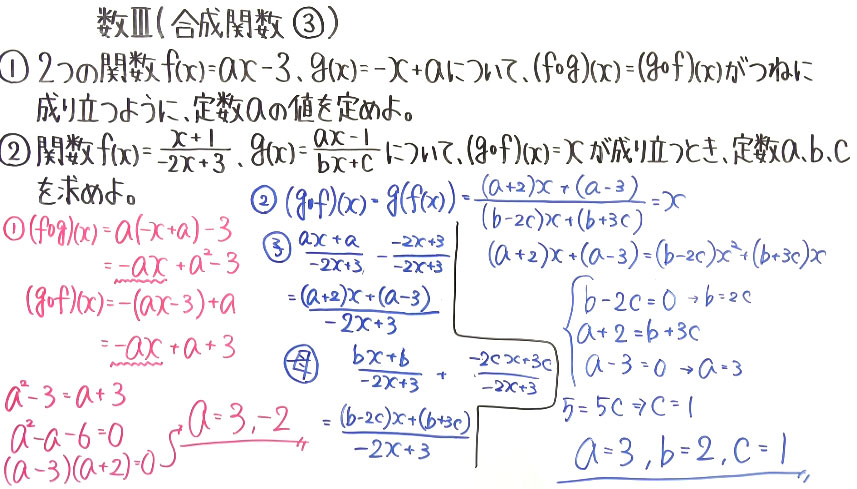 数Ⅲ(合成関数③)
① 2つの関数f(x)=ax-3、g(x)=-x+aについて、(f∘g)(x)=(g∘f)(x)がつねに
成り立つように、定数aの値を定めよ。
② 関数f(x)=\frac{x+1}{-2x+3}、g(x)=\frac{ax-1}{bx+c}について、(g∘f)(x)=xが成り立つとき、定数a、b、c
を求めよ。
①(f∘g)(x)=a(-x+a)-3
=-ax+a²-3
(g∘f)(x)=-(ax-3)+a
=-ax+a+3
a²-3=a+3
a²-a-6=0
(a-3)(a+2)=0
a=3,-2
② (g∘f)(x)=g(f(x))=\frac{(a+2)x+(a-3)}{(b-2c)x+(b+3c)}=x
㋙ \frac{ax+a}{-2x+3} - \frac{-2x+3}{-2x+3}
=\frac{(a+2)x+(a-3)}{-2x+3}
母 \frac{bx+b}{-2x+3} + \frac{-2cx+3c}{-2x+3}
=\frac{(b-2c)x+(b+3c)}{-2x+3}
(a+2)x+(a-3)=(b-2c)x²+(b+3c)x
b-2c=0→b=2c
a+2=b+3c
a-3=0→a=3
5=5c⇒c=1
a=3,b=2,c=1